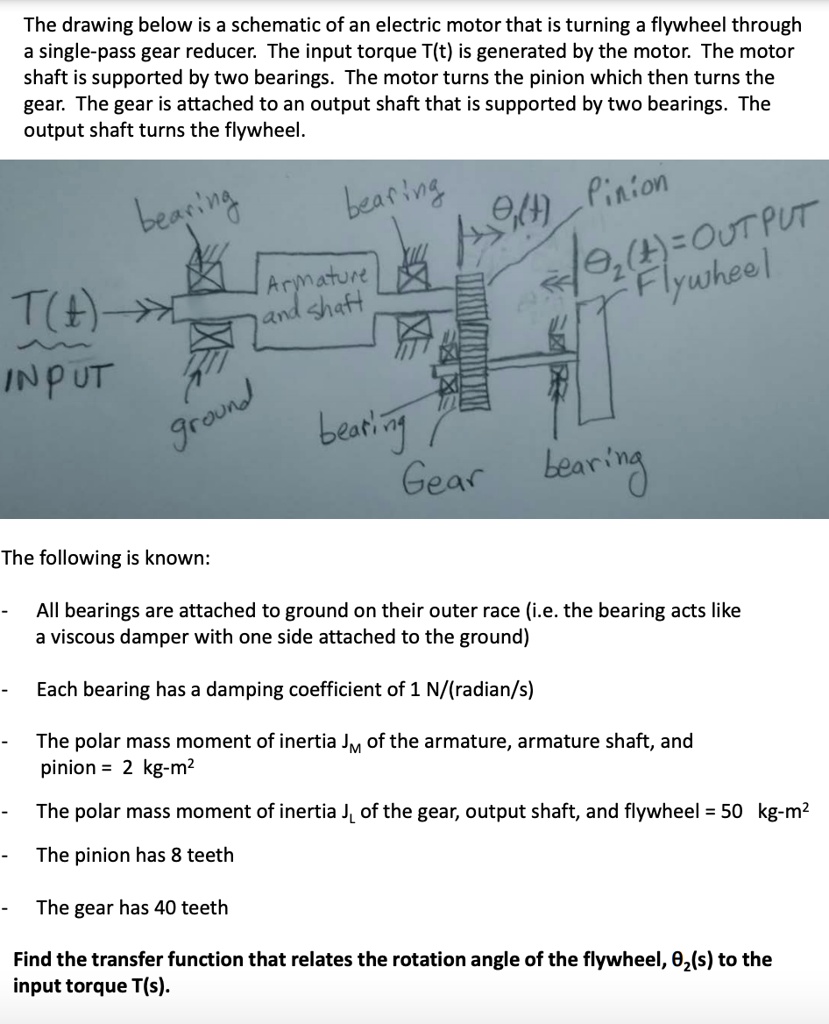 The drawing below is a schematic of an electric motor that is turning a flywheel through
a single-pass gear reducer. The input torque T(t) is generated by the motor. The motor
shaft is supported by two bearings. The motor turns the pinion which then turns the
gear. The gear is attached to an output shaft that is supported by two bearings. The
output shaft turns the flywheel.
bearing
bearing
θ₁(t)
Pinion
θ₂(t)=OUTPUT
Flywheel
Armature
and shaft
T(t)
INPUT
ground
bearing
Gear
bearing
The following is known:
- All bearings are attached to ground on their outer race (i.e. the bearing acts like
a viscous damper with one side attached to the ground)
- Each bearing has a damping coefficient of 1 N/(radian/s)
- The polar mass moment of inertia J_M of the armature, armature shaft, and
pinion = 2 kg-m²
- The polar mass moment of inertia J_L of the gear, output shaft, and flywheel = 50 kg-m²
- The pinion has 8 teeth
- The gear has 40 teeth
Find the transfer function that relates the rotation angle of the flywheel, θ₂(s) to the
input torque T(s).